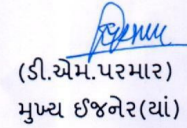 (ડી.એમ.પરમાર)
મુખ્ય ઈજનેર(યાં)